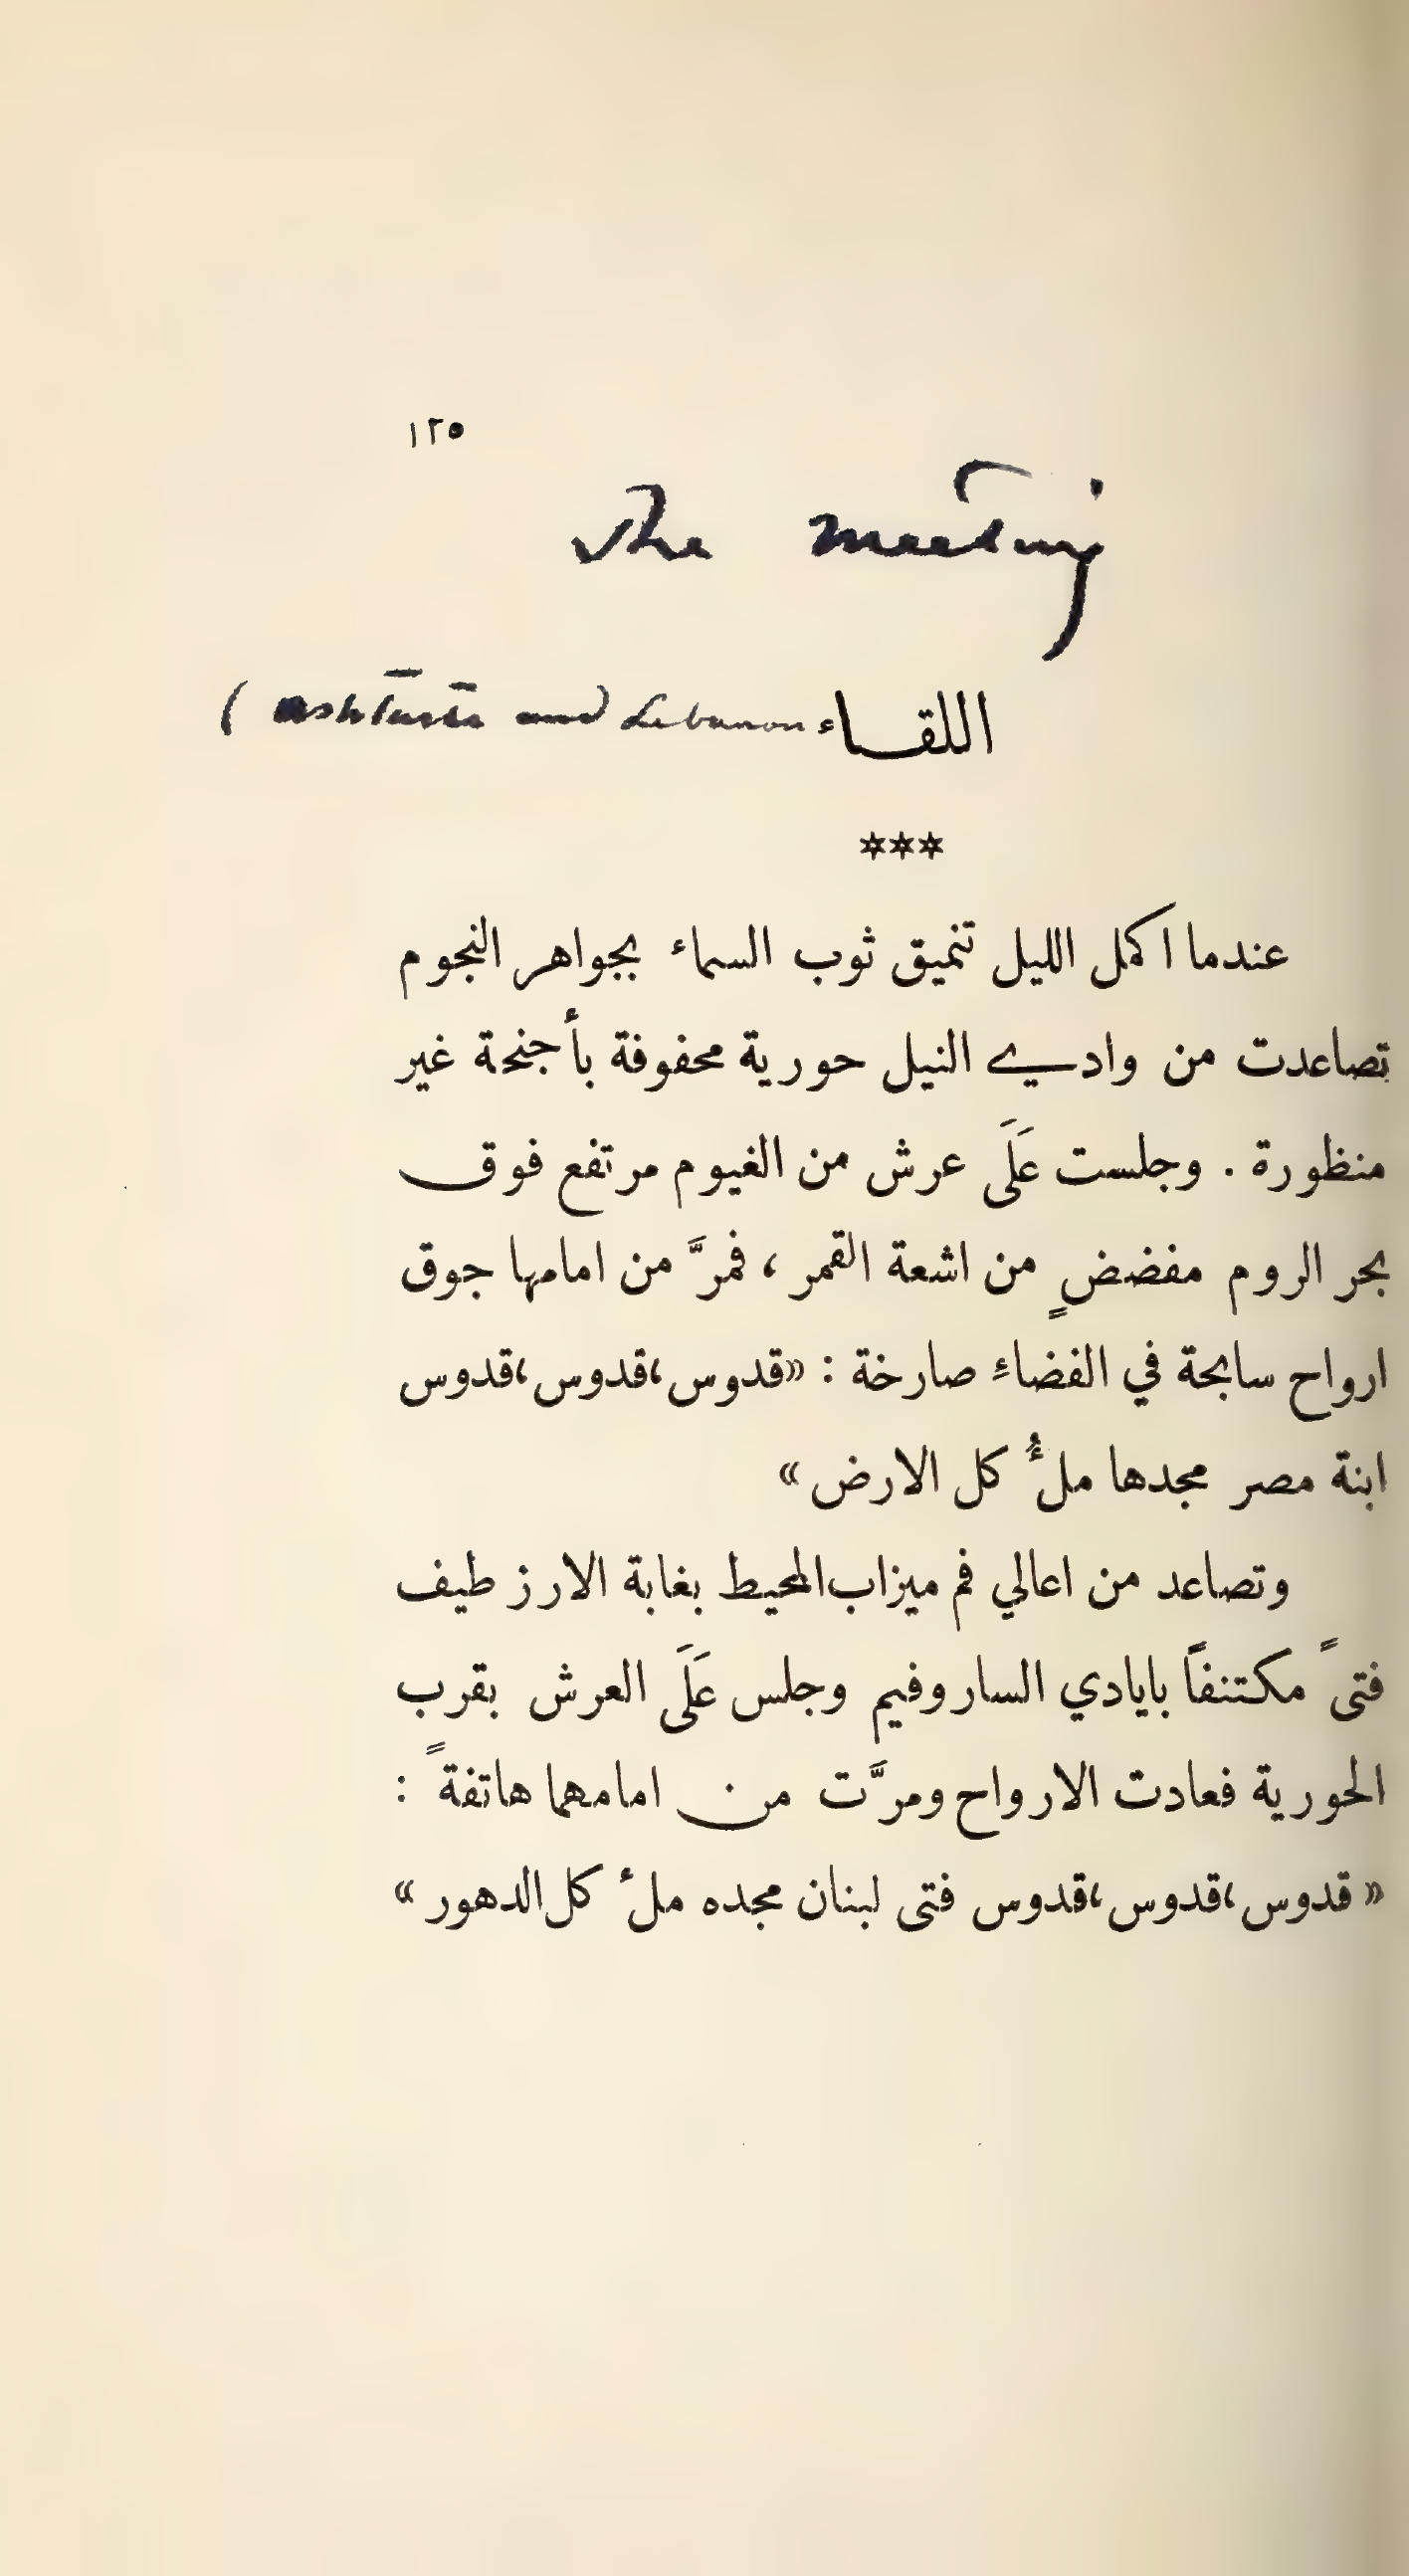 ١٢٥
The meeting
اللقاء
( Ashtarte and Lebanon
***
عندما اكمل الليل تنميق ثوب السماء بجواهر النجوم
تصاعدت من وادي النيل حورية محفوفة بأجنحة غير
منظورة . وجلست عَلَى عرش من الغيوم مرتفع فوق
بحر الروم مفضضٍ من اشعة القمر ، فمرَّ من امامها جوق
ارواح سابحة في الفضاءِ صارخة : «قدوس،قدوس،قدوس
ابنة مصر مجدها ملءُ كل الارض »
وتصاعد من اعالي فم ميزاب المحيط بغابة الارز طيف
فتىً مكتنفاً بايادي الساروفيم وجلس عَلَى العرش بقرب
الحورية فعادت الارواح ومرَّت من امامهما هاتفةً :
« قدوس،قدوس،قدوس فتى لبنان مجده ملء كل الدهور »